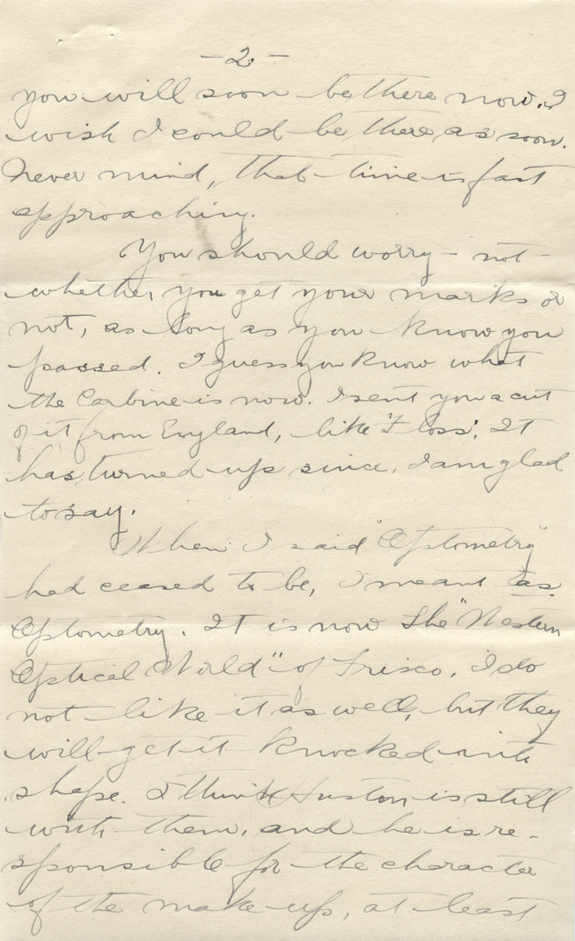 -2-
you will soon be there now. I
wish I could be there as soon.
Never mind, that time is fast
approaching.
You should worry - not -
whether you get your marks or
not, as long as you know you
passed. I guess you know what
the Carbine is now. I sent you a cut
of it from England, like 'Floss'. It
has turned up since, I am glad
to say.
When I said "Optometry"
had ceased to be, I meant as
Optometry. It is now the "Western
Optical World" of Frisco. I do
not like it as well, but they
will get it knocked into
shape. I think Huston is still
with them, and he is re-
sponsible for the character
of the make-up, at least